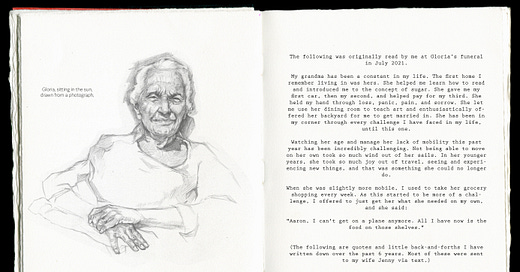 Gloria, sitting in the sun,
drawn from a photograph.
The following was originally read by me at Gloria's funeral
in July 2021.
My grandma has been a constant in my life. The first home I
remember living in was hers. She helped me learn how to read
and introduced me to the concept of sugar. She gave me my
first car, then my second, and helped pay for my third. She
held my hand through loss, panic, pain, and sorrow. She let
me use her dining room to teach art and enthusiastically of-
fered her backyard for me to get married in. She has been in
my corner through every challenge I have faced in my life,
until this one.
Watching her age and manage her lack of mobility this past
year has been incredibly challenging. Not being able to move
on her own took so much wind out of her sails. In her younger
years, she took so much joy out of travel, seeing and experi-
encing new things, and that was something she could no longer
do.
When she was slightly more mobile, I used to take her grocery
shopping every week. As this started to be more of a chal-
lenge, I offered to just get her what she needed on my own,
and she said:
"Aaron, I can't get on a plane anymore. All I have now is the
food on those shelves."
(The following are quotes and little back-and-forths I have
written down over the past 5 years. Most of these were sent
to my wife Jenny via text.)